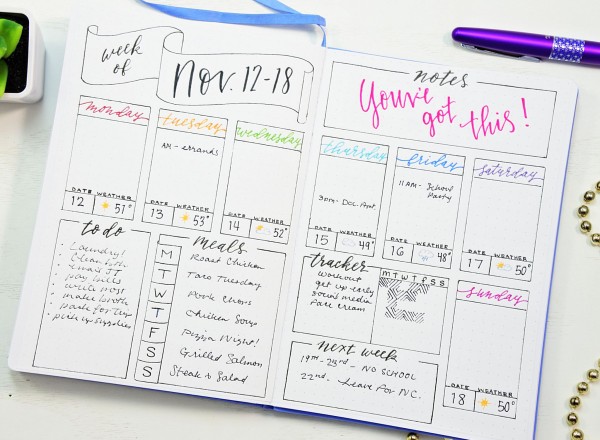 week
of
Nov. 12-18
monday
DATE WEATHER
12 51°
tuesday
AM - errands
DATE WEATHER
13 53°
wednesday
DATE WEATHER
14 52°
to do
Laundry!
Clean
email JT
pay bills
write post
make broth
pack for trip
pick up supplies
meals
M Roast Chicken
T Taco Tuesday
W Pork Chops
T Chicken Soup
F Pizza Night!
S Grilled Salmon
S Steak & Salad
notes
You've
got this!
thursday
3pm - Doc. Amt.
DATE WEATHER
15 49°
friday
11AM - School
Party
DATE WEATHER
16 48°
saturday
DATE WEATHER
17 50°
tracker
m T W T f S S
workout
get up early
social media
face cream
sunday
DATE WEATHER
18 50°
next week
19th - 23rd - NO SCHOOL
22nd - Leave for N.C.